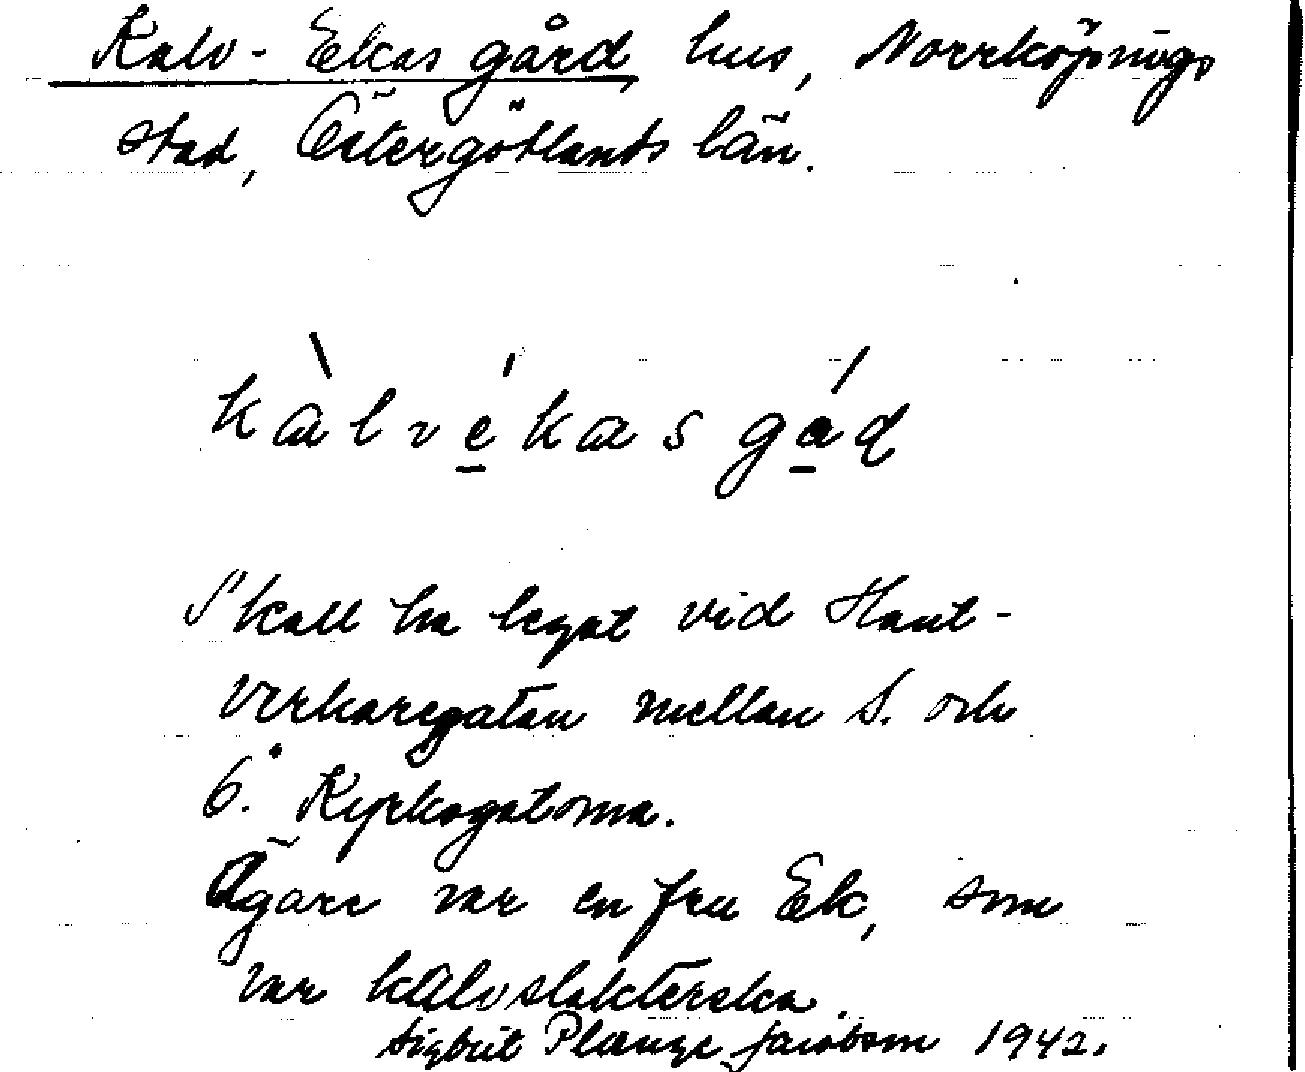 Kalv-Ekas gård, hus, Norrköpings
stad, Östergötlands län.
kàlvékasgád
Skall ha legat vid Hant-
verkaregatan mellan S. och
Ö. Kyrkogatorna.
Ägare var en fru Ek, som
var kalvslakterska.
Sigbrit Plænge Jacobson 1942.